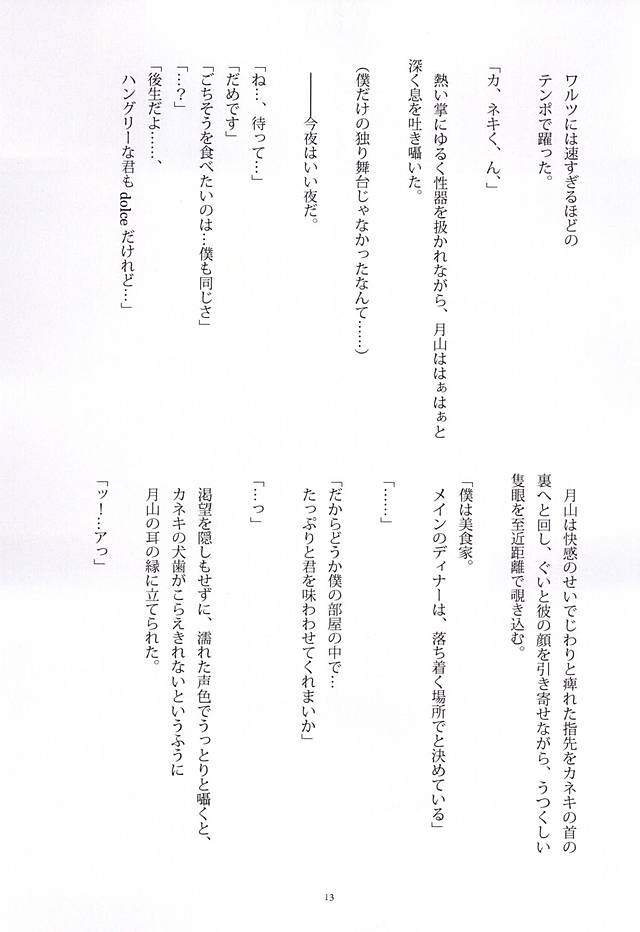 ワルツには速すぎるほどの
テンポで躍った。
「カ、ネキく、ん、」
熱い掌にゆるく性器を扱かれながら、月山ははぁはぁと
深く息を吐き囁いた。
(僕だけの独り舞台じゃなかったなんて……)
―――今夜はいい夜だ。
「ね…、待って…」
「だめです」
「ごちそうを食べたいのは…僕も同じさ」
「…？」
「後生だよ……、
ハングリーな君も dolce だけれど…」
月山は快感のせいでじわりと痺れた指先をカネキの首の
裏へと回し、ぐいと彼の顔を引き寄せながら、うつくしい
隻眼を至近距離で覗き込む。
「僕は美食家。
メインのディナーは、落ち着く場所でと決めている」
「……」
「だからどうか僕の部屋の中で…
たっぷりと君を味わわせてくれまいか」
「…っ」
渇望を隠しもせずに、濡れた声色でうっとりと囁くと、
カネキの犬歯がこらえきれないというふうに
月山の耳の縁に立てられた。
「ッ！…アっ」
13